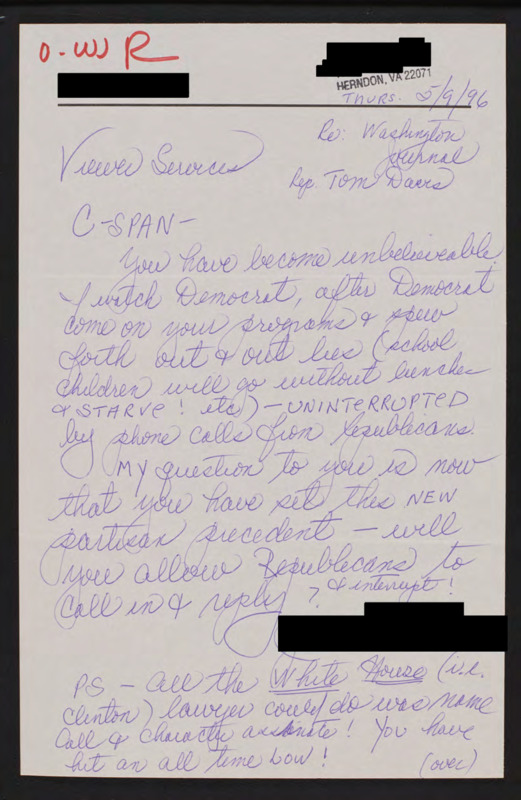 O-W R
HERNDON, VA 22071
THURS. 5/9/96
Re: Washington
Journal
Rep. Tom Davis
Viewer Services
C-SPAN-
You have become unbelieveable.
I watch Democrat, after Democrat
come on your programs & spew
forth out & out lies (school
children will go without lunches
& STARVE! etc) - UNINTERRUPTED
by phone calls from Republicans.
My question to you is now
that you have set this NEW
partisan precedent - will
you allow Republicans to
call in & reply & interrupt!
?
PS - all the White House (i.e.
Clinton) lawyer could do was name
call & character assinate! You have
hit an all time Low!
(over)